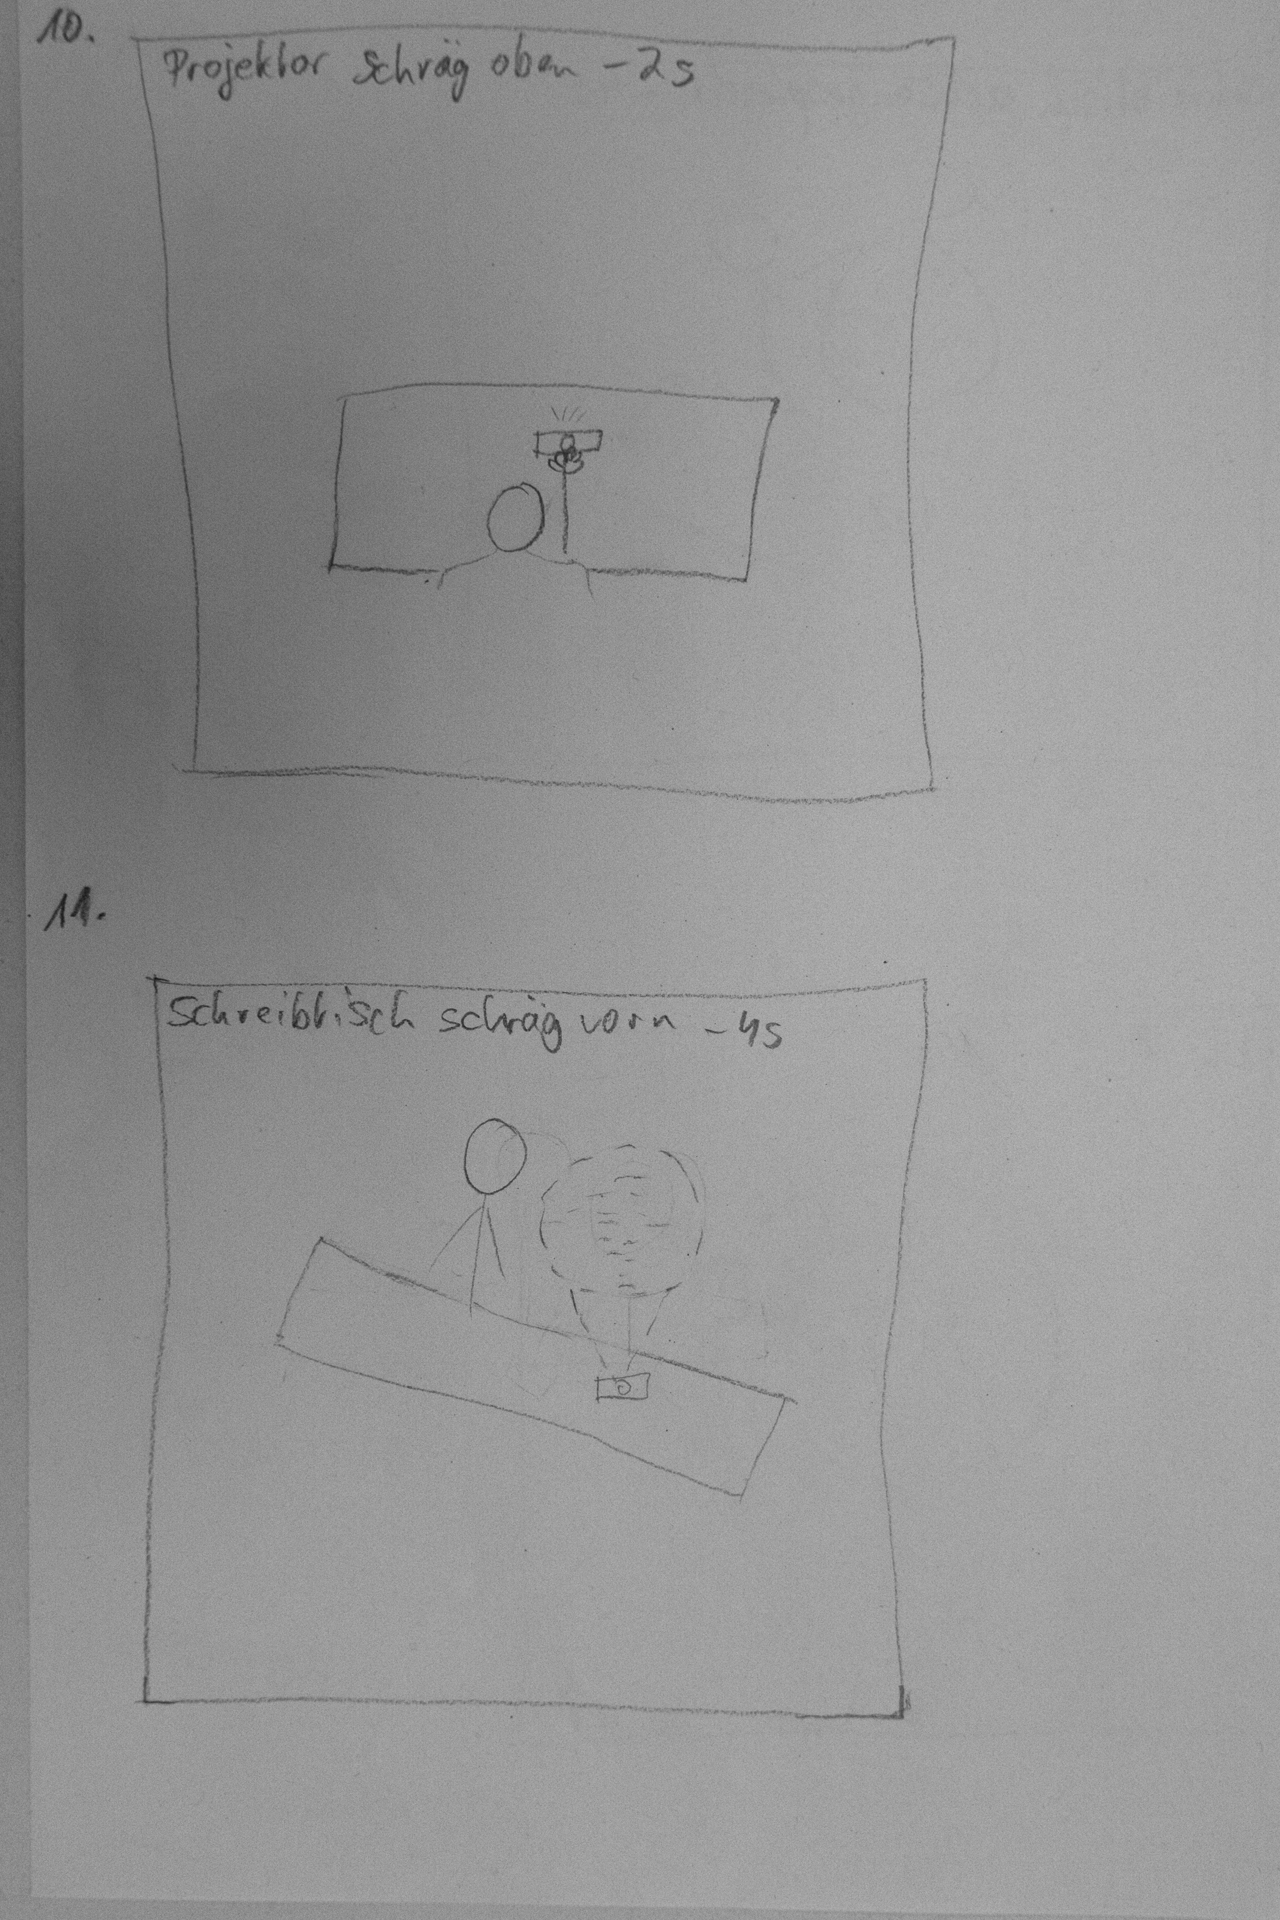 10.
Projektor schräg oben - 2s
11.
Schreibtisch schräg vorn - 4s